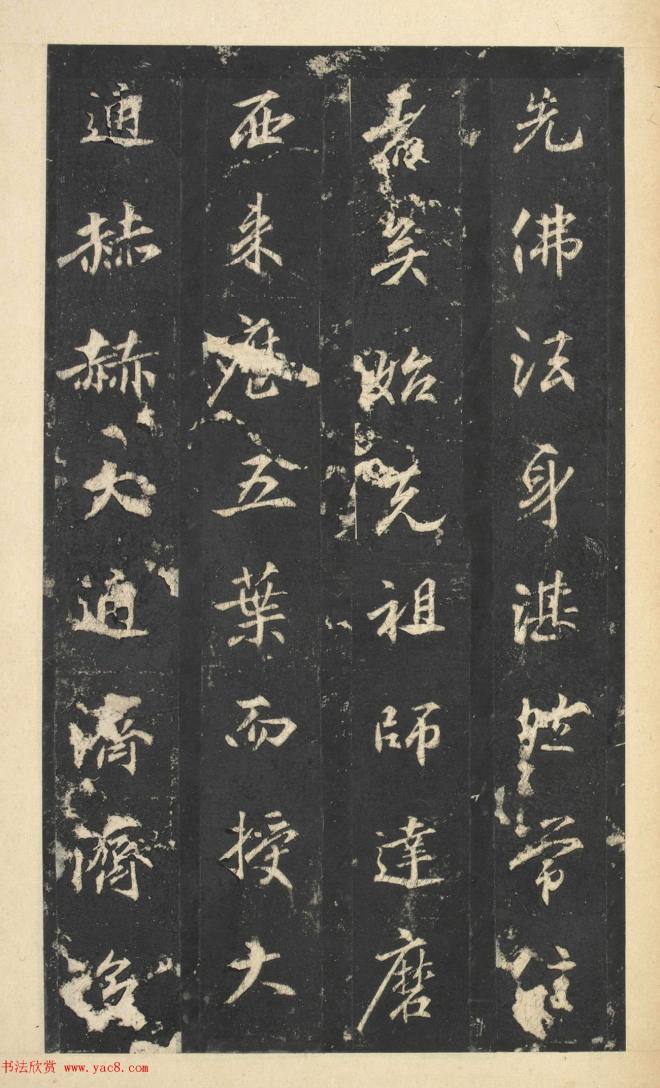 先佛法身湛然常住
者矣始先祖師達磨
西来歷五葉而授大
通赫赫大通濟濟
书法欣赏 www.yac8.com